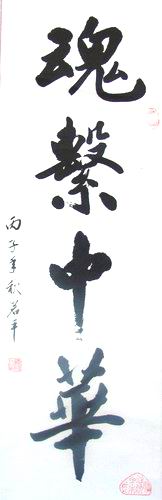 魂繫中華
丙子年秋若平